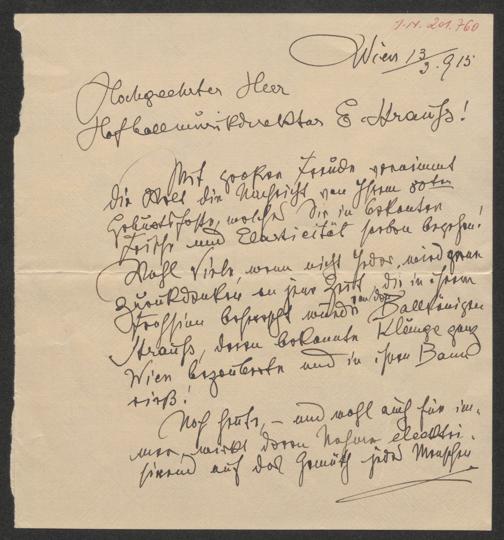 J.N. 201.760
Wien 13/3. 915
Hochgeehrter Herr
Hofballmusikdirektor E. Strauß!
Mit großer Freude vernimmt
die Welt die Nachricht von Ihrem 80ten
Geburtsfeste, welches Sie in bekannter
Frische und Elasticität soeben begehen!
Wohl Viele, wenn nicht Jeder, wird gern
zurückdenken an jene Zeit, die in ihrem
Frohsinn beherrscht wurde von den Ballkönigen
Strauß, deren bekannte Klänge ganz
Wien bezauberte und in ihren Bann
riß!
Noch heute, – und wohl auch für im-
mer, wirkt deren Name electri-
sirend auf das Gemüth jedes Menschen